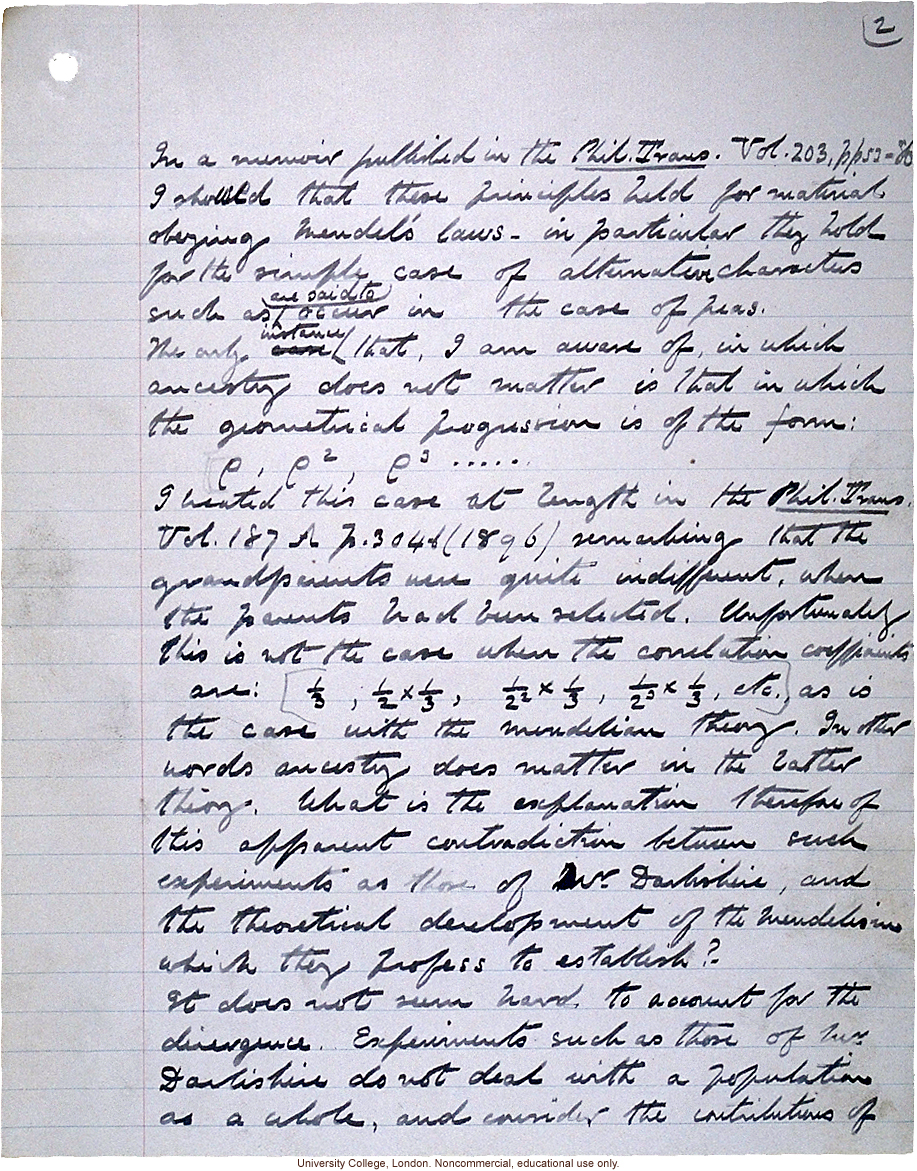 2
In a memoir published in the Phil. Trans. Vol. 203, pp 53-86
I showed that these principles held for material
obeying Mendel's laws - in particular they hold
for the simple case of alternative characters
such as are said to occur in the case of peas.
The only case instance that, I am aware of, in which
ancestry does not matter is that in which
the geometrical progression is of the form:
ρ, ρ², ρ³ ......
I treated this case at length in the Phil. Trans.
Vol. 187 A p. 304 (1896) remarking that the
grandparents were quite indifferent, when
the parents had been selected. Unfortunately
this is not the case when the correlation coefficients
are: [ 1/3, 1/2 × 1/3, 1/2² × 1/3, 1/2³ × 1/3, etc.] as is
the case with the mendelian theory. In other
words ancestry does matter in the latter
theory. What is the explanation therefore of
this apparent contradiction between such
experiments as those of Mr Darbishire, and
the theoretical development of the Mendelism
which they profess to establish?
It does not seem hard to account for the
divergence. Experiments such as those of Mr
Darbishire do not deal with a population
as a whole, and consider the contributions of
University College, London. Noncommercial, educational use only.